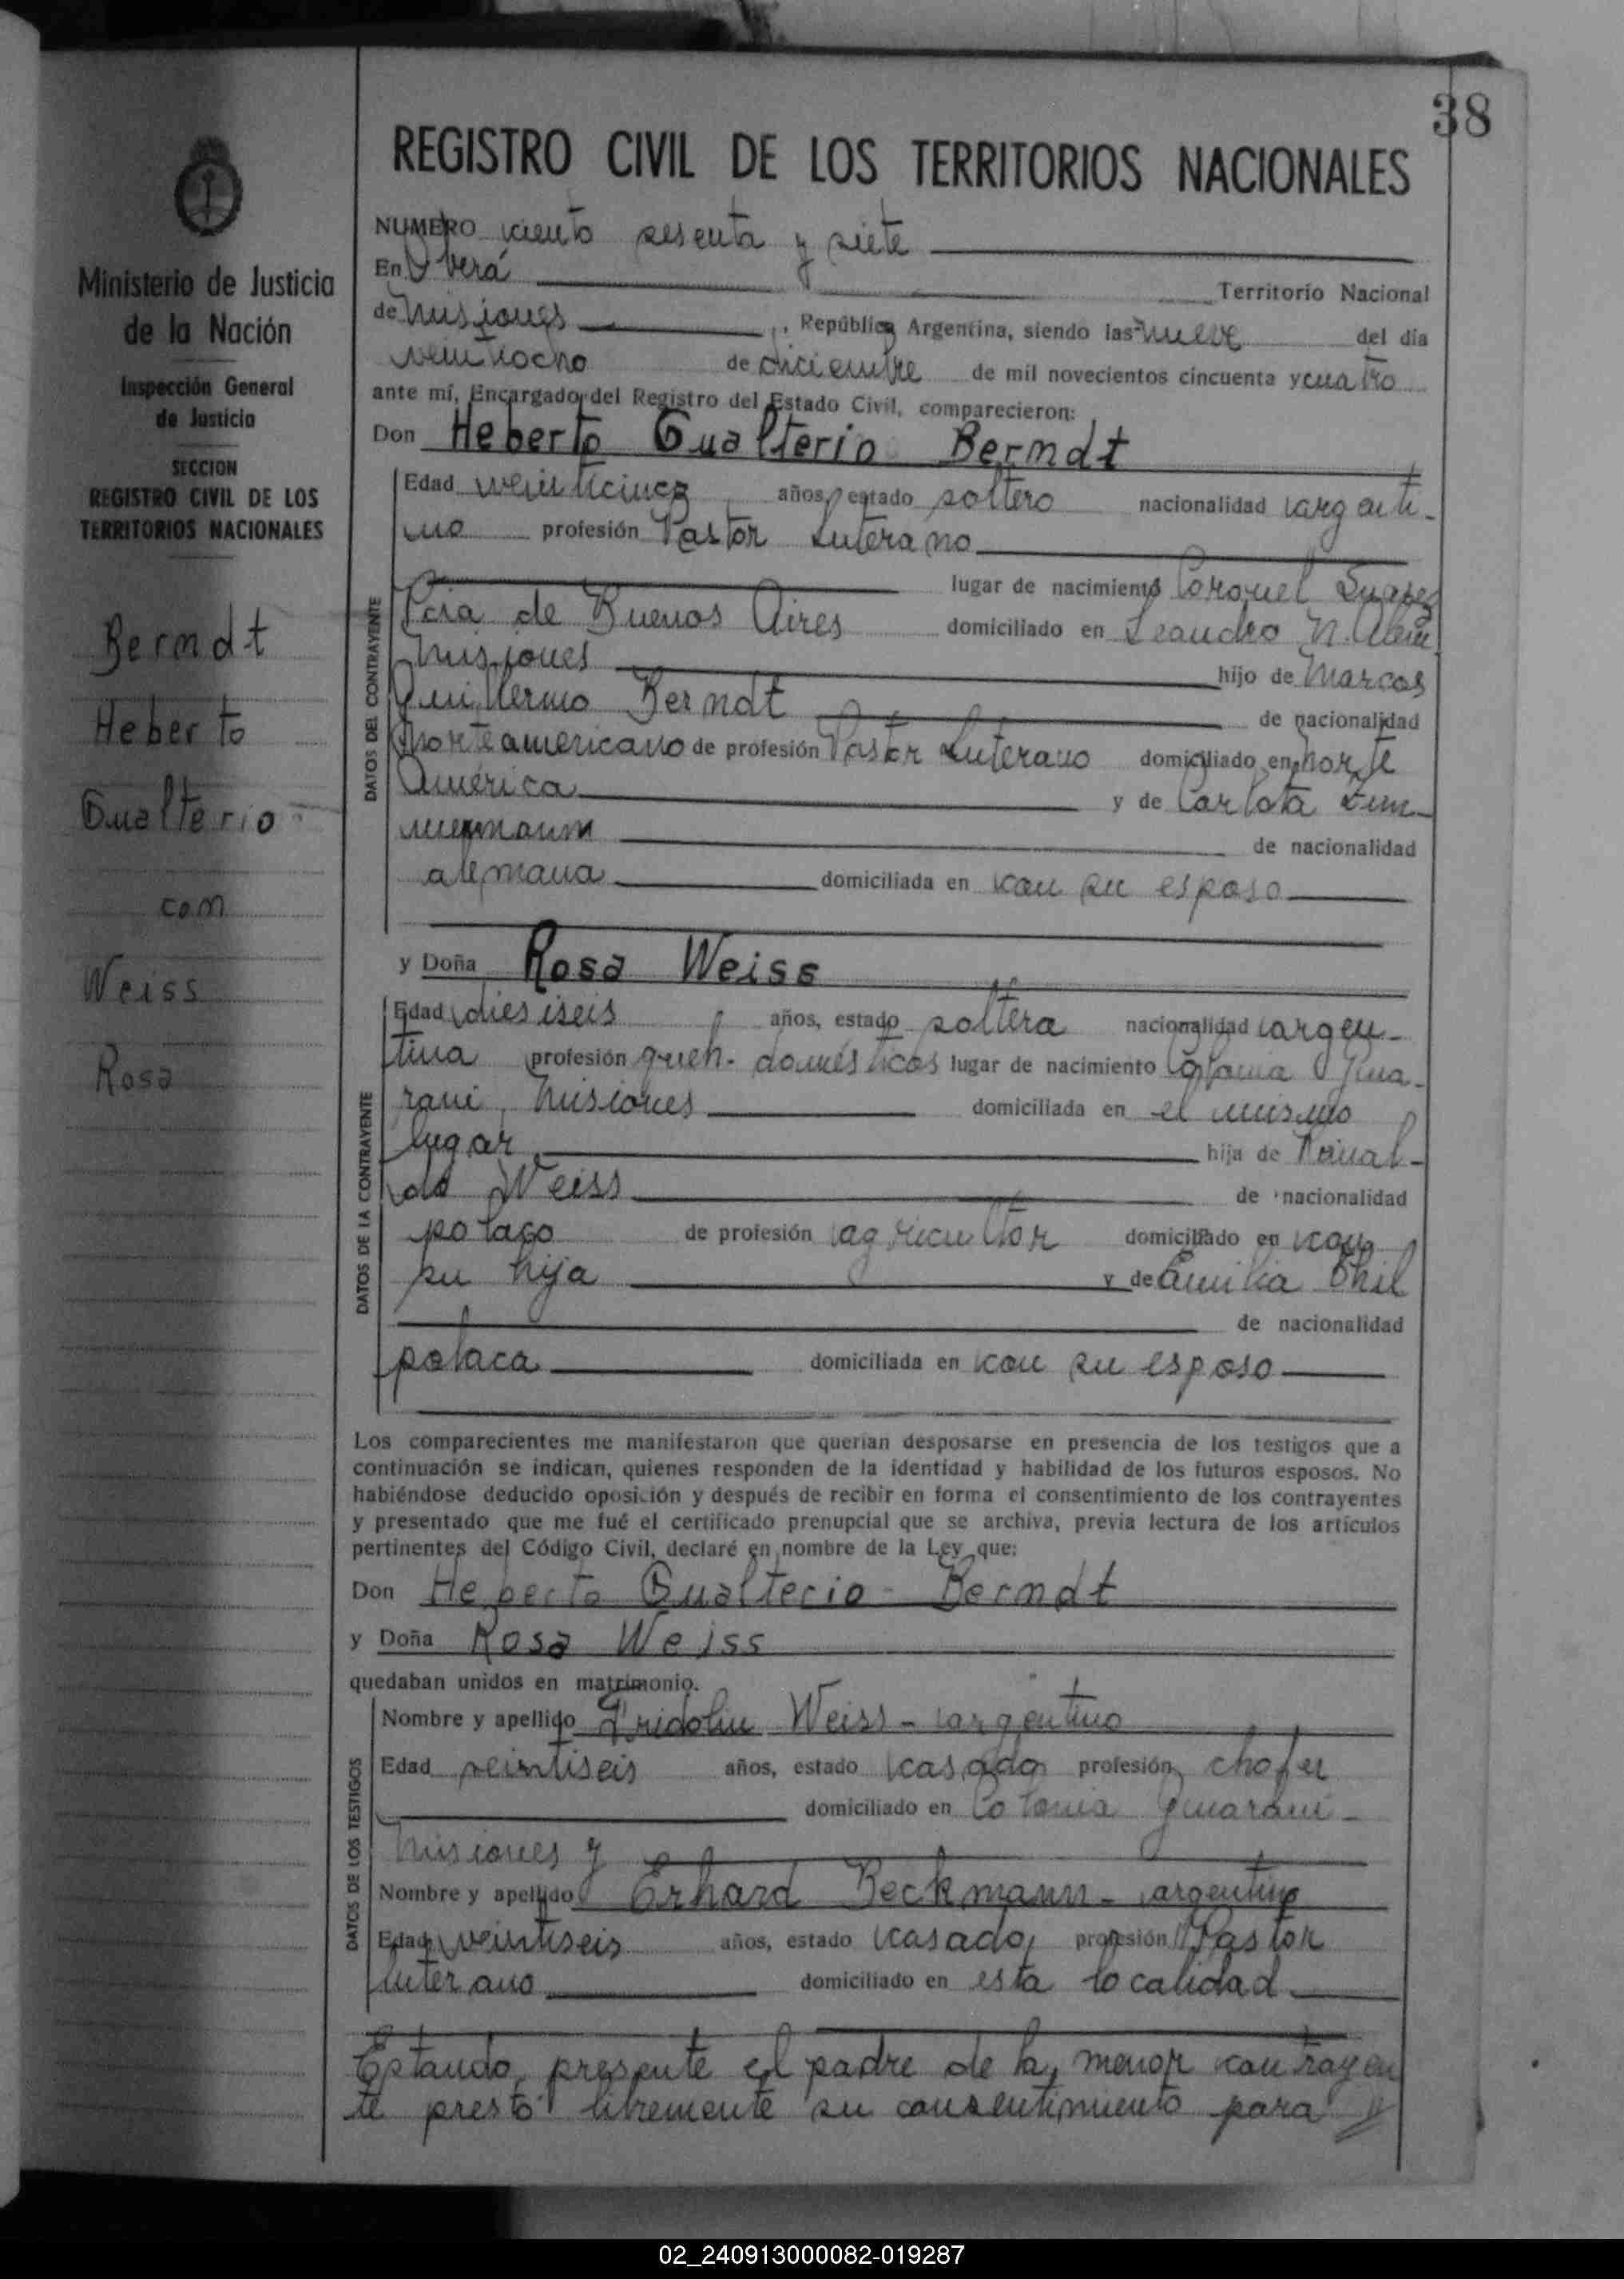 38
REGISTRO CIVIL DE LOS TERRITORIOS NACIONALES
Ministerio de Justicia
de la Nación
Inspección General
de Justicia
SECCION
REGISTRO CIVIL DE LOS
TERRITORIOS NACIONALES
Berndt
Heberto
Gualterio
con
Weiss
Rosa
NUMERO ciento sesenta y siete
En Oberá Territorio Nacional
de Misiones, República Argentina, siendo las nueve del día
veintiocho de diciembre de mil novecientos cincuenta y cuatro
ante mí, Encargado del Registro del Estado Civil, comparecieron:
Don Heberto Gualterio Berndt
DATOS DEL CONTRAYENTE
Edad veinticinco años, estado soltero nacionalidad argenti-
no profesión Pastor Luterano
lugar de nacimiento Coronel Suarez
Pcia de Buenos Aires domiciliado en Leandro N. Alem
Misiones hijo de Marcos
Guillermo Berndt de nacionalidad
norteamericano de profesión Pastor Luterano domiciliado en Norte
América y de Carlota Zim-
mermann de nacionalidad
alemana domiciliada en con su esposo
y Doña Rosa Weiss
DATOS DE LA CONTRAYENTE
Edad diesiseis años, estado soltera nacionalidad argen-
tina profesión queh. domésticos lugar de nacimiento Colonia Gua-
rani, Misiones domiciliada en el mismo
lugar hija de Rainal-
do Weiss de nacionalidad
polaco de profesión agricultor domiciliado en con
su hija y de Emilia
de nacionalidad
polaca domiciliada en con su esposo
Los comparecientes me manifestaron que querían desposarse en presencia de los testigos que a
continuación se indican, quienes responden de la identidad y habilidad de los futuros esposos. No
habiéndose deducido oposición y después de recibir en forma el consentimiento de los contrayentes
y presentado que me fué el certificado prenupcial que se archiva, previa lectura de los artículos
pertinentes del Código Civil, declaré en nombre de la Ley que:
Don Heberto Gualterio Berndt
y Doña Rosa Weiss
quedaban unidos en matrimonio.
DATOS DE LOS TESTIGOS
Nombre y apellido Fridolin Weiss - argentino
Edad veintiseis años, estado casado profesión chofer
domiciliado en Colonia Guarani -
Misiones y
Nombre y apellido Erhard Beckmann - argentino
Edad veintiseis años, estado casado, profesión Pastor
Luterano domiciliado en esta localidad
Estando presente el padre de la menor contrayen
te prestó libremente su consentimiento para //
02_240913000082-019287